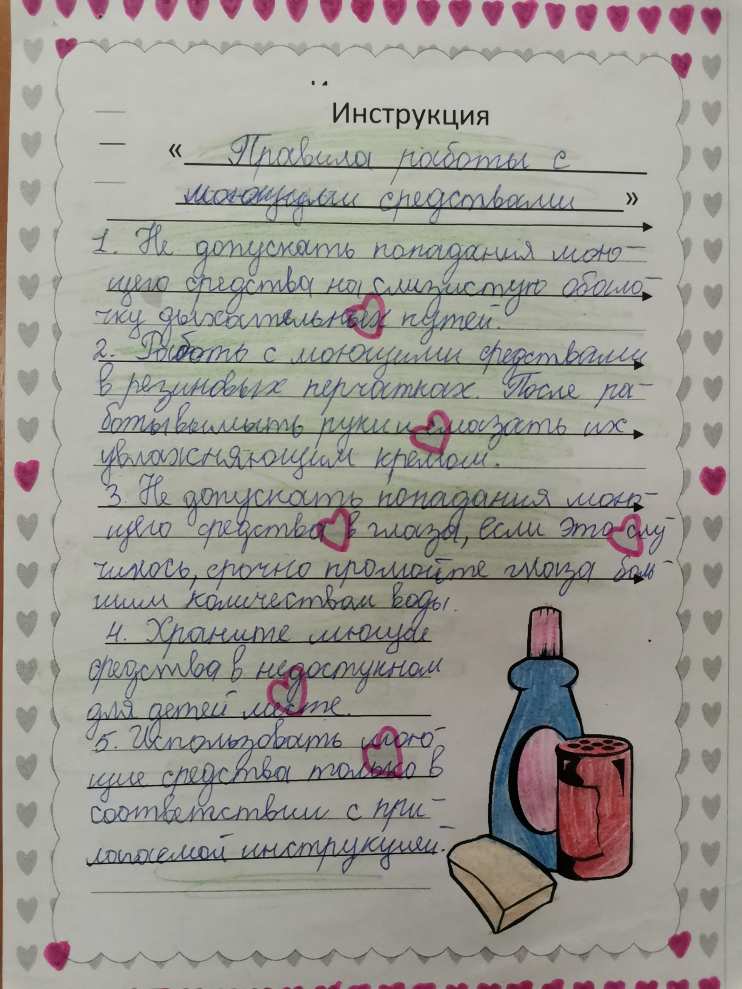 Инструкция
« Правила работы с
моющими средствами »
1. Не допускать попадания мою-
щего средства на слизистую оболо-
чку дыхательных путей.
2. Работать с моющими средствами
в резиновых перчатках. После ра-
боты вымыть руки и смазать их
увлажняющим кремом.
3. Не допускать попадания мою-
щего средства в глаза, если это слу-
чилось, срочно промойте глаза боль-
шим количеством воды.
4. Храните моющие
средства в недоступном
для детей месте.
5. Использовать мою-
щие средства только в
соответствии с при-
лагаемой инструкцией.